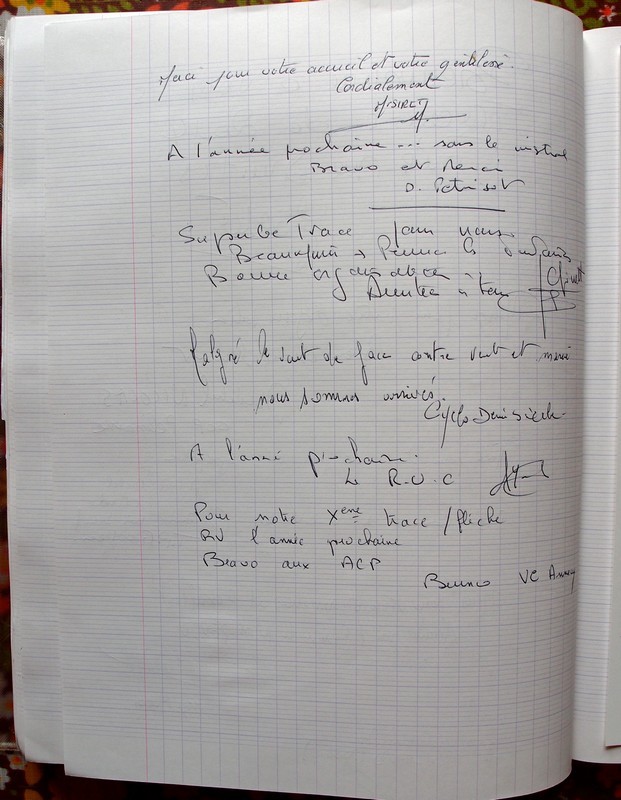 Merci pour votre accueil et votre gentillesse.
Cordialement
A l'année prochaine ... sans le mistral
Bravo et Merci
D.
Superbe Trace pour nous
Bonne organisation
Malgré le vent de face contre vent et marée
nous sommes arrivés.
Cyclo
A l'année prochaine.
Le R.U.C
Pour notre Xème trace/flèche
RV l'année prochaine
Bravo aux ACP
Bruno VC Annecy